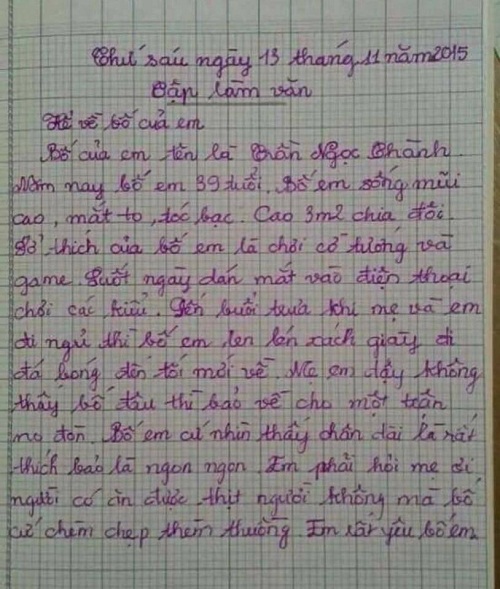 Thứ sáu ngày 13 tháng 11 năm 2015
Tập làm văn
Kể về bố của em
Bố của em tên là Trần Ngọc Thành.
Năm nay bố em 39 tuổi. Bố em sống mũi
cao, mắt to, tóc bạc. Cao 3m2 chia đôi.
Sở thích của bố em là chơi cờ tướng và
game. Suốt ngày dán mắt vào điện thoại
chơi các kiểu. Đến buổi trưa khi mẹ và em
đi ngủ thì bố em len lén xách giày đi
đá bóng đến tối mới về. Mẹ em dậy không
thấy bố đâu thì bảo về cho một trận
no đòn. Bố em cứ nhìn thấy chân dài là rất
thích bảo là ngon ngon. Em phải hỏi mẹ ơi
người có ăn được thịt người không mà bố
cứ chẹm chẹp thèm thuồng. Em rất yêu bố em